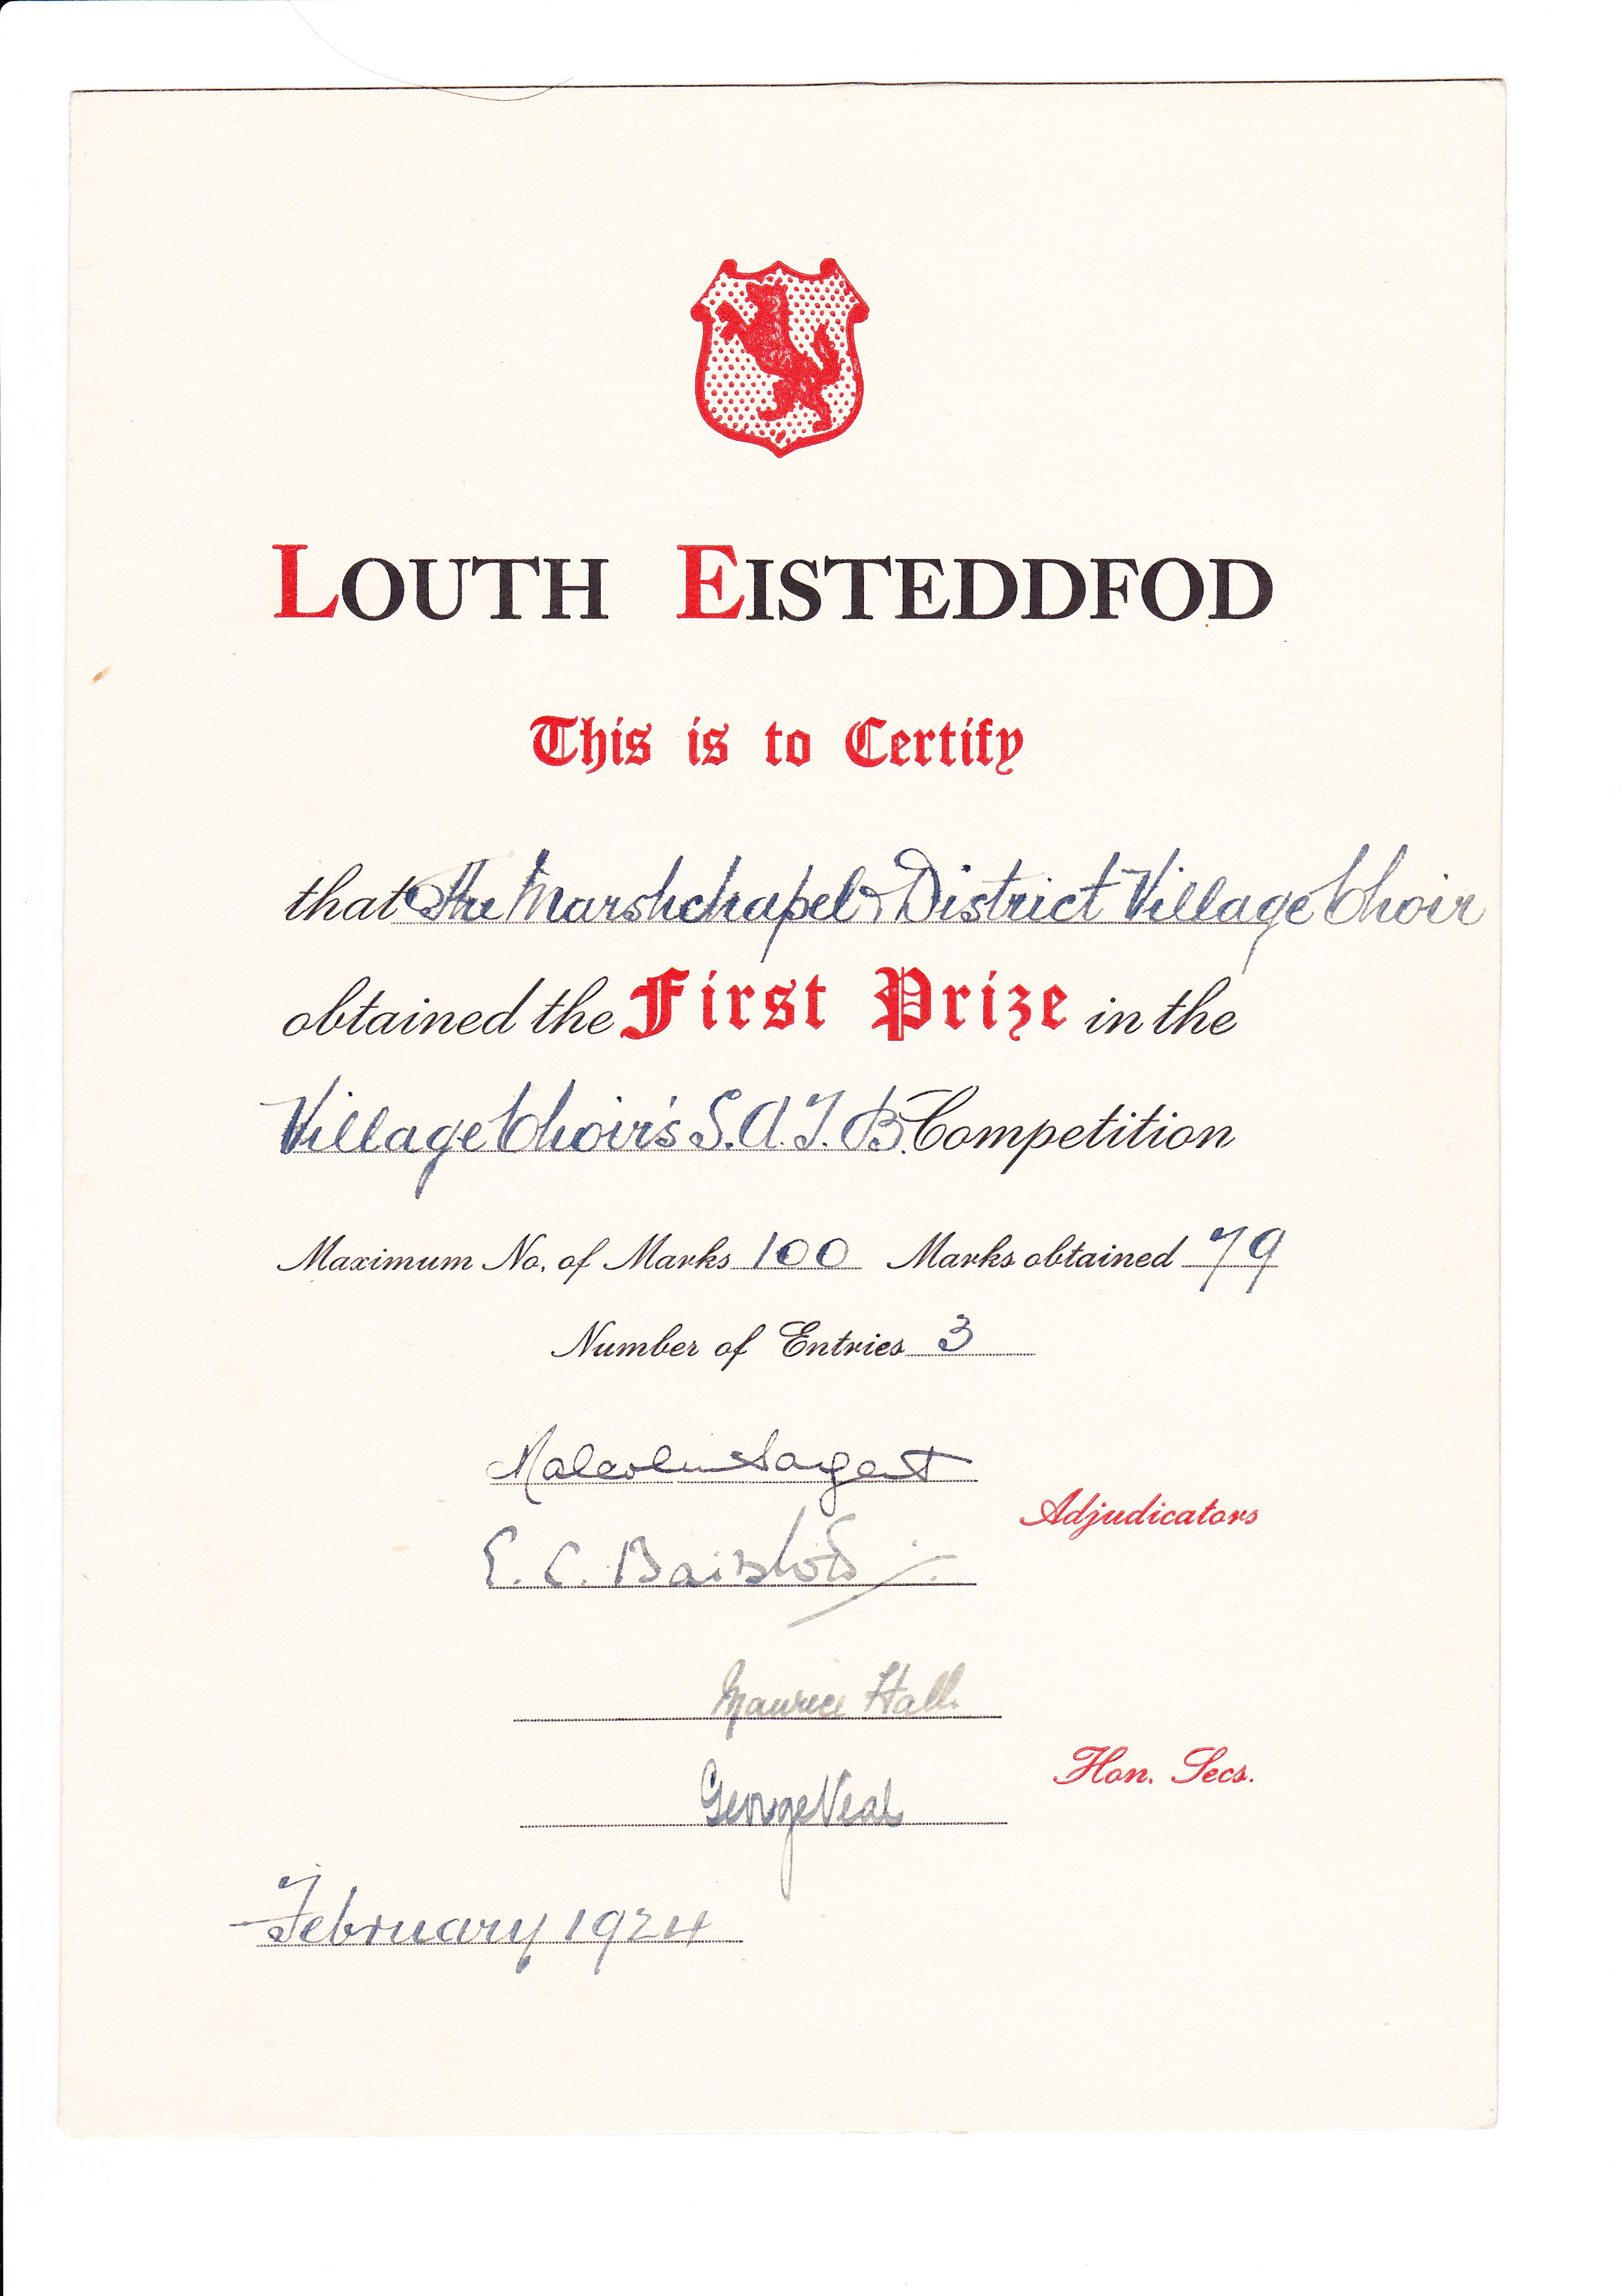 LOUTH EISTEDDFOD
This is to Certify
that the Marshchapel & District Village Choir
obtained the First Prize in the
Village Choir's S.A.T.B. Competition
Maximum No. of Marks 100 Marks obtained 79
Number of Entries 3
Malcolm Sargent
Adjudicators
E. C. Bairstow
Maurice Hall
Hon. Secs.
George Veal
February 1924